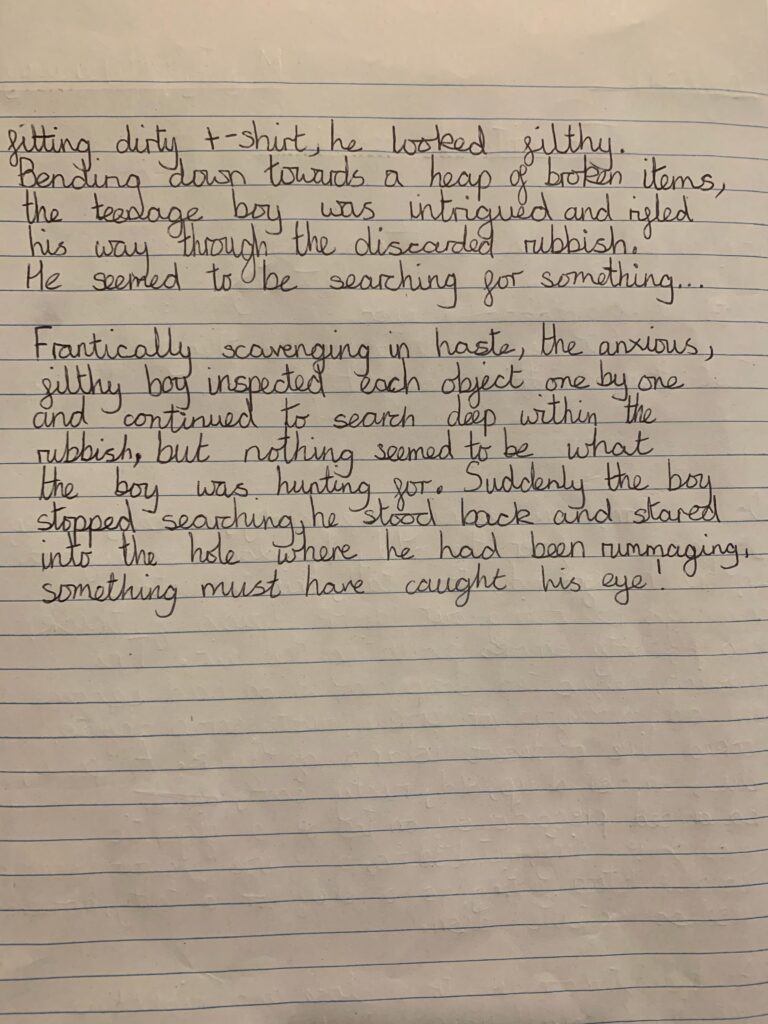 fitting dirty t-shirt, he looked filthy.
Bending down towards a heap of broken items,
the teenage boy was intrigued and rifled
his way through the discarded rubbish.
He seemed to be searching for something...
Frantically scavenging in haste, the anxious,
filthy boy inspected each object one by one
and continued to search deep within the
rubbish, but nothing seemed to be what
the boy was hunting for. Suddenly the boy
stopped searching, he stood back and stared
into the hole where he had been rummaging,
something must have caught his eye!